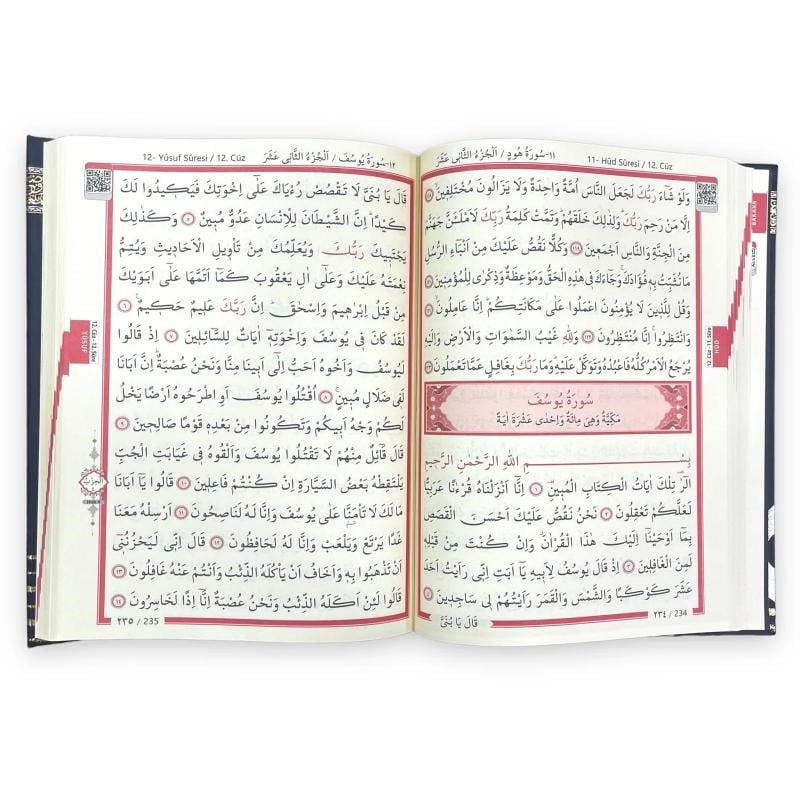 ١١-سُورَةُ هُودٍ / اَلْجُزْءُ الثَّانِى عَشَرَ 11- Hûd Sûresi / 12. Cüz
وَلَوْ شَٓاءَ رَبُّكَ لَجَعَلَ النَّاسَ اُمَّةً وَاحِدَةً وَلَا يَزَالُونَ مُخْتَلِفٖينَ
اِلَّا مَنْ رَحِمَ رَبُّكَ وَلِذٰلِكَ خَلَقَهُمْ وَتَمَّتْ كَلِمَةُ رَبِّكَ لَاَمْلَـَٔنَّ جَهَنَّمَ
مِنَ الْجِنَّةِ وَالنَّاسِ اَجْمَعٖينَ ١١٩ وَكُلًّا نَقُصُّ عَلَيْكَ مِنْ اَنْبَٓاءِ الرُّسُلِ
مَا نُثَبِّتُ بِهٖ فُؤٰادَكَ وَجَٓاءَكَ فٖى هٰذِهِ الْحَقُّ وَمَوْعِظَةٌ وَذِكْرٰى لِلْمُؤْمِنٖينَ
وَقُلْ لِلَّذٖينَ لَا يُؤْمِنُونَ اعْمَلُوا عَلٰى مَكَانَتِكُمْ اِنَّا عَامِلُونَ
وَانْتَظِرُوا اِنَّا مُنْتَظِرُونَ ١٢٢ وَلِلّٰهِ غَيْبُ السَّمٰوَاتِ وَالْاَرْضِ وَاِلَيْهِ
يُرْجَعُ الْاَمْرُ كُلُّهُ فَاعْبُدْهُ وَتَوَكَّلْ عَلَيْهِ وَمَا رَبُّكَ بِغَافِلٍ عَمَّا تَعْمَلُونَ
سُورَةُ يُوسُفَ
مَكِّيَّةٌ وَهِىَ مِائَةٌ وَاِحْدٰى عَشْرَةَ اٰيَةً
بِسْمِ اللّٰهِ الرَّحْمٰنِ الرَّحٖيمِ
الٓرٰ تِلْكَ اٰيَاتُ الْكِتَابِ الْمُبٖينِ ١ اِنَّٓا اَنْزَلْنَاهُ قُرْءٰنًا عَرَبِيًّا
لَعَلَّكُمْ تَعْقِلُونَ ٢ نَحْنُ نَقُصُّ عَلَيْكَ اَحْسَنَ الْقَصَصِ
بِمَٓا اَوْحَيْنَٓا اِلَيْكَ هٰذَا الْقُرْاٰنَ وَاِنْ كُنْتَ مِنْ قَبْلِهٖ
لَمِنَ الْغَافِلٖينَ ٣ اِذْ قَالَ يُوسُفُ لِاَبٖيهِ يَٓا اَبَتِ اِنّٖى رَاَيْتُ اَحَدَ
عَشَرَ كَوْكَبًا وَالشَّمْسَ وَالْقَمَرَ رَاَيْتُهُمْ لٖى سَاجِدٖينَ ٤
قَالَ يَا بُنَىَّ
٢٣٤ / 234
BAKARA
HÛD
12. Cüz - 11. Sûre
12- Yûsuf Sûresi / 12. Cüz ١٢-سُورَةُ يُوسُفَ / اَلْجُزْءُ الثَّانِى عَشَرَ
قَالَ يَا بُنَىَّ لَا تَقْصُصْ رُءْيَاكَ عَلٰٓى اِخْوَتِكَ فَيَكٖيدُوا لَكَ
كَيْدًا اِنَّ الشَّيْطَانَ لِلْاِنْسَانِ عَدُوٌّ مُبٖينٌ ٥ وَكَذٰلِكَ
يَجْتَبٖيكَ رَبُّكَ وَيُعَلِّمُكَ مِنْ تَأْوٖيلِ الْاَحَادٖيثِ وَيُتِمُّ
نِعْمَتَهُ عَلَيْكَ وَعَلٰٓى اٰلِ يَعْقُوبَ كَمَٓا اَتَمَّهَا عَلٰٓى اَبَوَيْكَ
مِنْ قَبْلُ اِبْرٰهٖيمَ وَاِسْحٰقَ اِنَّ رَبَّكَ عَلٖيمٌ حَكٖيمٌ ٦
لَقَدْ كَانَ فٖى يُوسُفَ وَاِخْوَتِهٖٓ اٰيَاتٌ لِلسَّٓائِلٖينَ ٧ اِذْ قَالُوا
لَيُوسُفُ وَاَخُوهُ اَحَبُّ اِلٰٓى اَبٖينَا مِنَّا وَنَحْنُ عُصْبَةٌ اِنَّ اَبَانَا
لَفٖى ضَلَالٍ مُبٖينٍ ٨ اُقْتُلُوا يُوسُفَ اَوِ اطْرَحُوهُ اَرْضًا يَخْلُ
لَكُمْ وَجْهُ اَبٖيكُمْ وَتَكُونُوا مِنْ بَعْدِهٖ قَوْمًا صَالِحٖينَ ٩
قَالَ قَٓائِلٌ مِنْهُمْ لَا تَقْتُلُوا يُوسُفَ وَاَلْقُوهُ فٖى غَيَابَتِ الْجُبِّ
يَلْتَقِطْهُ بَعْضُ السَّيَّارَةِ اِنْ كُنْتُمْ فَاعِلٖينَ ١٠ قَالُوا يَٓا اَبَانَا
مَا لَكَ لَا تَأْمَنَّا عَلٰى يُوسُفَ وَاِنَّا لَهُ لَنَاصِحُونَ ١١ اَرْسِلْهُ مَعَنَا
غَدًا يَرْتَعْ وَيَلْعَبْ وَاِنَّا لَهُ لَحَافِظُونَ ١٢ قَالَ اِنّٖى لَيَحْزُنُنٖٓى
اَنْ تَذْهَبُوا بِهٖ وَاَخَافُ اَنْ يَأْكُلَهُ الذِّئْبُ وَاَنْتُمْ عَنْهُ غَافِلُونَ ١٣
قَالُوا لَئِنْ اَكَلَهُ الذِّئْبُ وَنَحْنُ عُصْبَةٌ اِنَّٓا اِذًا لَخَاسِرُونَ ١٤
٢٣٥ / 235
YUSUF
12. Cüz - 12. Sûre